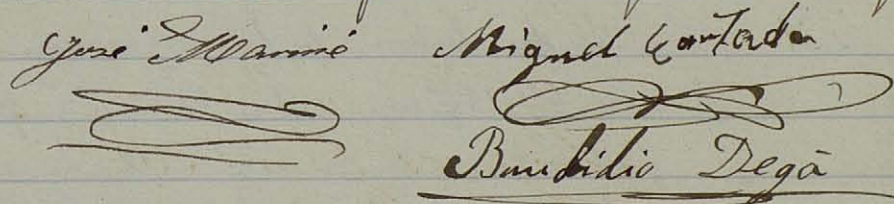 José Mariné Miguel Cortada
Baudilio Degà